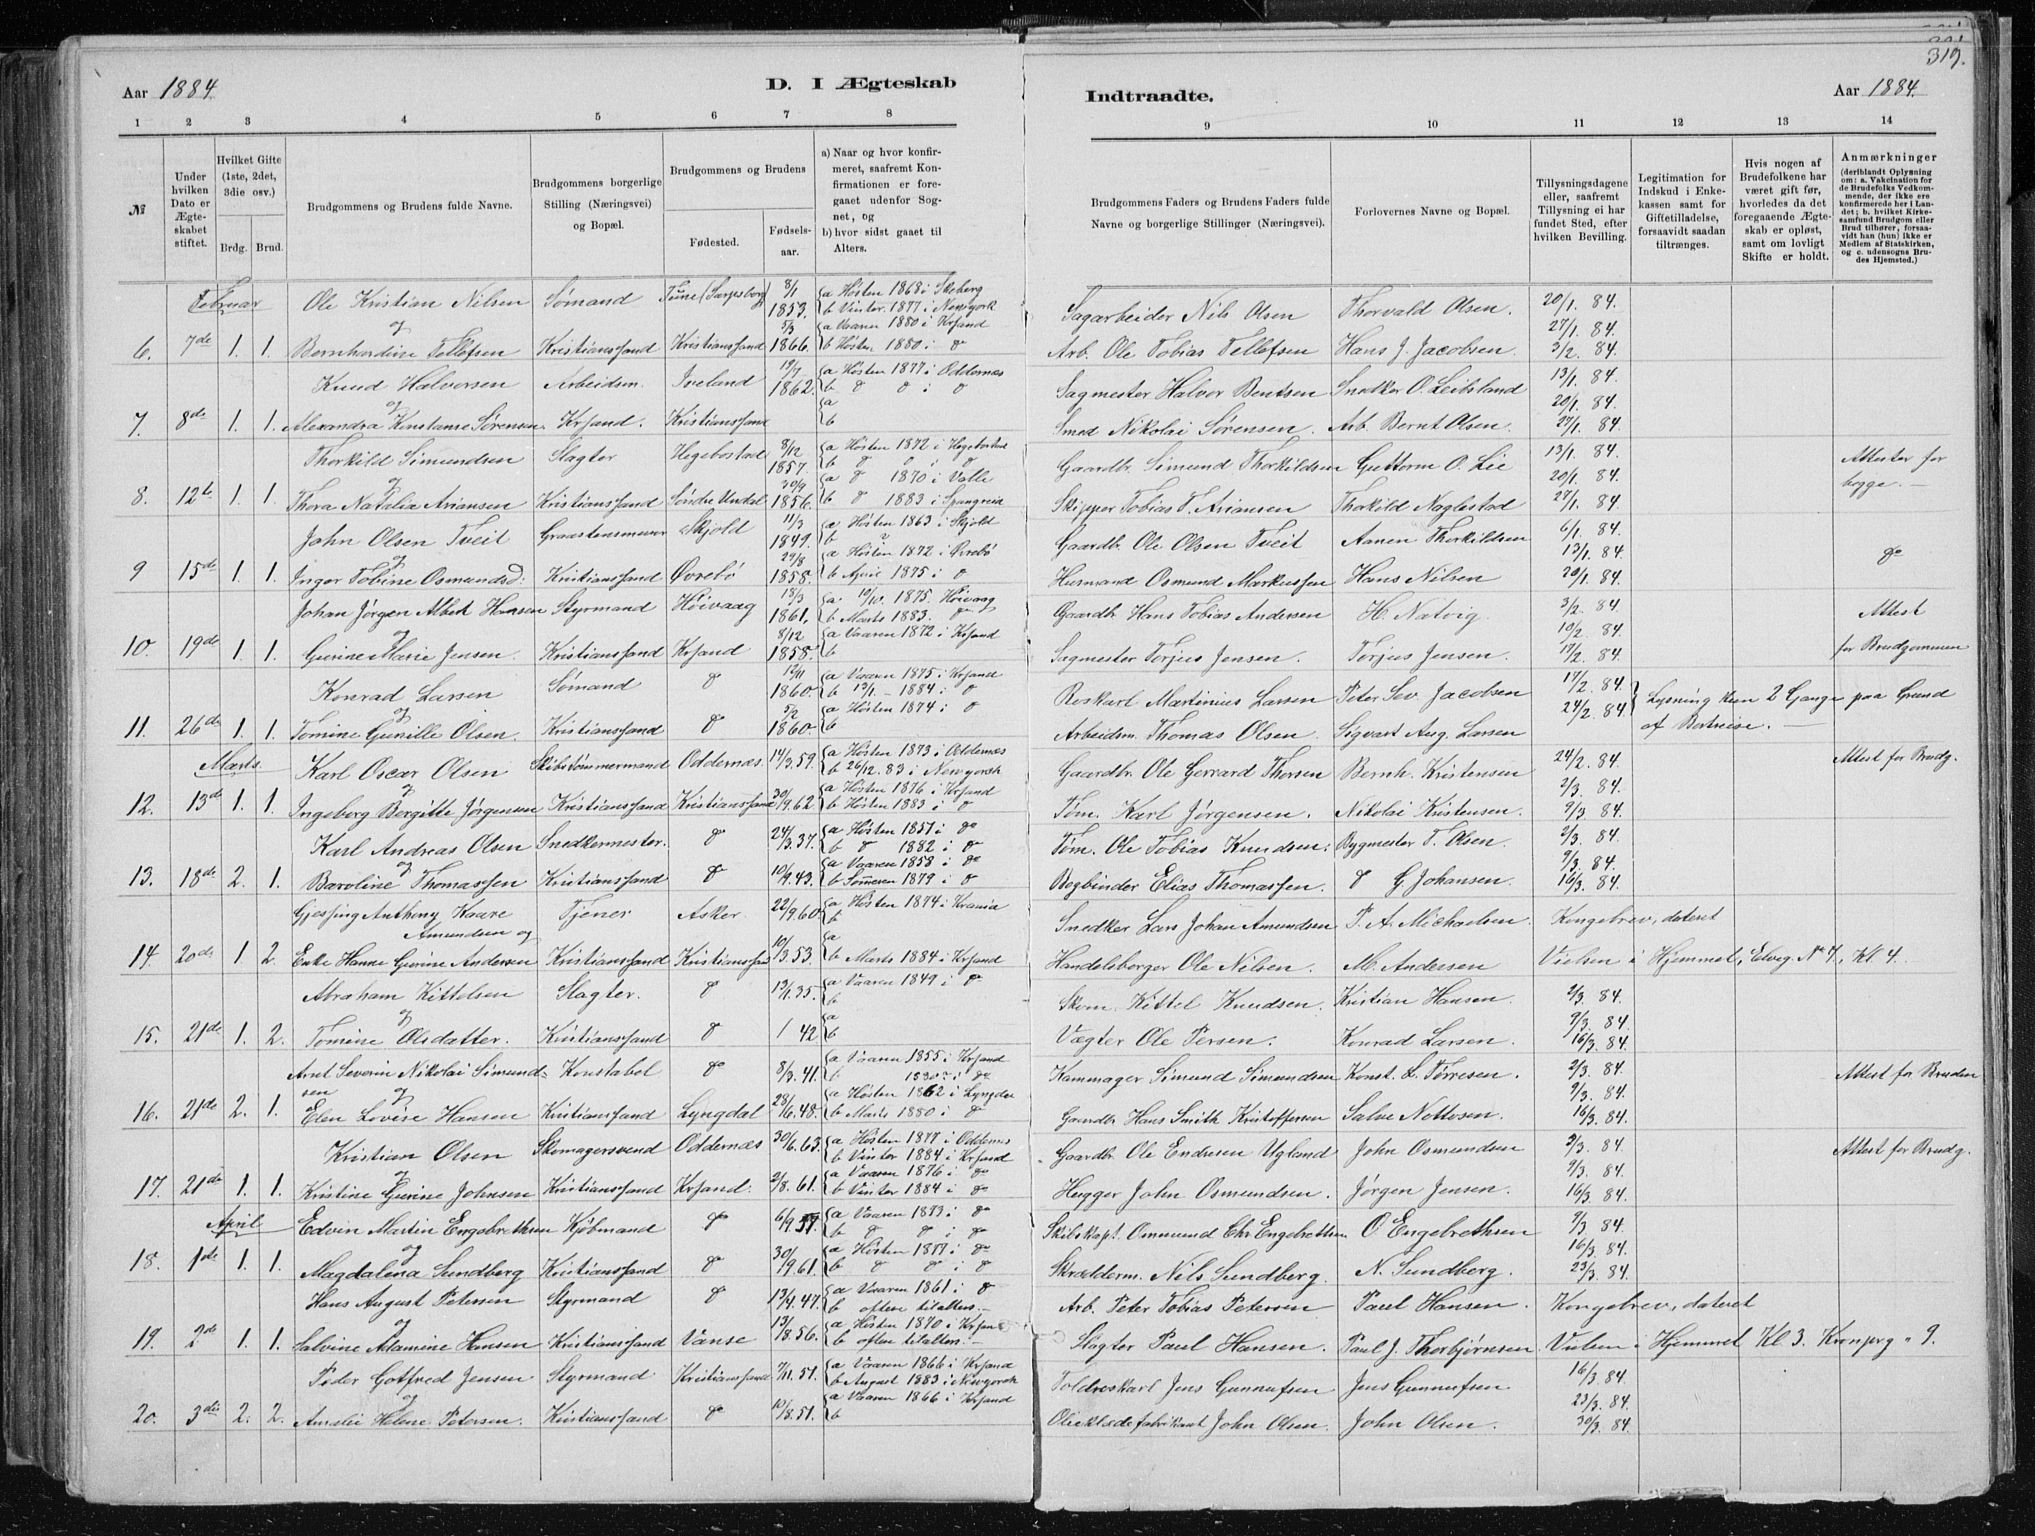 319.
Aar 1884.
D. I Ægteskab
Indtraadte.
Aar 1884.
1 2 3 4 5 6 7 8 9 10 11 12 13 14
№
Under hvilken Dato er Ægteskabet stiftet.
Hvilket Gifte (1ste, 2det, 3die osv.)
Brdg. Brud.
Brudgommens og Brudens fulde Navne.
Brudgommens borgerlige Stilling (Næringsvei) og Bopæl.
Brudgommens og Brudens
Fødested.
Fødselsaar.
a) Naar og hvor konfirmeret, saafremt Konfirmationen er foregaaet udenfor Sognet, og
b) hvor sidst gaaet til Alters.
Brudgommens Faders og Brudens Faders fulde Navne og borgerlige Stillinger (Næringsvei).
Forlovernes Navne og Bopæl.
Tillysningsdagene eller, saafremt Tillysning ei har fundet Sted, efter hvilken Bevilling.
Legitimation for Indskud i Enkekassen samt for Giftetilladelse, forsaavidt saadan tiltrænges.
Hvis nogen af Brudefolkene har været gift før, hvorledes da det foregaaende Ægteskab er opløst, samt om lovligt Skifte er holdt.
Anmærkninger (deriblandt Oplysning om: a. Vakcination for de Brudefolks Vedkommende, der ikke ere konfirmerede her i Landet; b. hvilket Kirkesamfund Brudgom eller Brud tilhører, forsaavidt han (hun) ikke er Medlem af Statskirken, og c. udensogns Brudes Hjemsted.)
Februar Ole Kristian Nilsen Sømand Tune (Sarpsborg) 8/1 1853. a Høsten 1868 i Skeberg b Vinter 1877 i Newyork Sagarbeider Nils Olsen Thorvald Olsen. 20/1. 84.
6. 7de 1. 1. og Bernhardine Tellefsen Kristianssand Kristianssand 5/3 1866. a Vaaren 1880 i Krsand b Høsten 1880 i do Arb. Ole Tobias Tellefsen Hans J. Jacobsen. 27/1. 84. 3/2. 84.
Knud Halvorsen Arbeidsm. Iveland 1862. a Høsten 1877 i Oddernes b do do i do Sagmester Halvor Bentsen Snedker O. Leibsland 13/1. 84.
7. 8de 1. 1. og Alexandra Konstanse Sørensen. Krsand. Kristianssand a b Smed Nikolai Sørensen. Arb. Bernt Olsen. 20/1. 84. 27/1. 84.
Thorkild Simundsen Slagter Hegebostad 8/12 1857. a Høsten 1872 i Hegebostad b do do i do Gaardbr. Simund Thorkildsen Guttorm O. Lie 13/1. 84. Attester for
8. 12te 1. 1. og Thora Natalia Ariansen Kristianssand Søndre Undal 30/9 1856. a do 1870 i Valle b do 1883 i Spangreid Skipper Tobias T. Ariansen Thorkild Naglestad 20/1. 84. 27/1. 84. begge. —
John Olsen Tveit Graastensmurer Skjold 11/3 1849. a Høsten 1863 i Skjold b Gaardbr. Ole Olsen Tveit Aanen Thorkildsen 6/1. 84.
9 15de 1. 1. og Inger Tobine Osmundsd: Kristianssand Øvrebø 29/8 1858. a Høsten 1872 i Øvrebø b April 1875 i do Husmand Osmund Markussen Hans Nilsen 13/1. 84. 20/1. 84. do
Johan Jørgen Albert Hansen Styrmand Høivaag 18/3 1861. a 10/10. 1875. Høivaag b Marts 1883. do Gaardbr. Hans Tobias Andersen H. Natvig. 3/2. 84. Attest
10. 19de 1. 1. og Gurine Marie Jensen. Kristianssand Krsand 8/12 1858. a Vaaren 1872 i Krsand b Sagmester Torjus Jensen. Torjus Jensen. 10/2. 84. 17/2. 84. for Brudgommen
Konrad Larsen Sømand do 1860. a Vaaren 1875 i Krsand b 13/1 – 1884 i do Roskarl Martinius Larsen Peter Sev. Jacobsen 17/2. 84. Lysning kun 2 Gange paa Grund
11. 26de 1. 1. og Tomine Gunille Olsen. Kristianssand do 5/2 1860. a Høsten 1874 i do b Arbeidsm. Thomas Olsen. Sigvart Aug. Larsen 24/2. 84. af Bortreise. —
Marts. Karl Oscar Olsen Skibstømmermand Oddernes 14/3. 59. a Høsten 1873 i Oddernes b 26/12. 83 i Newyork Gaardbr. Ole Gerrard Thorsen Bernh. Kristensen 24/2. 84. Attest for Brudg.
12. 13de 1. 1. og Ingeborg Bergitte Jørgensen Kristianssand Kristianssand 30/9. 62. a Høsten 1876 i Krsand b Høsten 1883 i do Tøm. Karl Jørgensen. Nikolai Kristensen. 2/3. 84. 9/3. 84.
Karl Andreas Olsen Snedkermester. do 24/3. 37. a Høsten 1851 i do b do 1882 i do Tøm. Ole Tobias Knudsen: Bygmester T. Olsen. 2/3. 84.
13. 18de 2. 1. og Baroline Thomassen Kristianssand do 10/9. 43. a Vaaren 1858 i do b Sommeren 1879 i do Bogbinder Elias Thomassen. do G. Johansen. 9/3. 84. 16/3. 84.
Gjessing Anthony Kaare Amundsen og Tjener Asker. 22/9. 60. a Høsten 1874 i Krania b Snedker Lars Johan Amundsen P. A. Michaelsen Kongebrev, dateret
14. 20de 1. 2. Enke Hanne Gurine Andersen Kristianssand Kristianssand 10/3. 53. a b Marts 1884 i Krsand Handelsborger Ole Nilsen. M. Andersen Vielsen i Hjemmet, Elveg. No 7, Kl. 4.
Abraham Kittelsen Slagter. do 13/1. 35. a Vaaren 1849 i do b Skom. Kittel Knudsen. Kristian Hansen. 2/3. 84.
15. 21de 1. 2. og Tomine Olsdatter. Kristianssand do 1 42 a b Vægter Ole Persen. Konrad Larsen. 9/3. 84. 16/3. 84.
Arnt Severin Nikolai Simundsen Konstabel do 8/3. 41. a Vaaren 1855 i Krsand b i do Kammager Simund Simundsen Konst. L. Tørresen. 2/3. 84. Attest for Bruden
16. 21de 2. 1. og Elen Lovise Hansen Kristianssand Lyngdal 28/6. 48. a Høsten 1862 i Lyngdal b Marts 1880 i do Gaardbr. Hans Smith Kristoffersen Salve Nottosen. 9/3. 84. 16/3. 84.
Kristian Olsen Skomagersvend Oddernes 30/6. 63. a Høsten 1877 i Oddernes b Vinter 1884 i Krsand Gaardbr. Ole Endresen Ugland John Osmundsen 2/3. 84. Attest for Brudg.
17. 21de 1. 1. og Kristine Gurine Johnsen Kristianssand Krsand. 2/8. 61. a Vaaren 1876 i do b Vinter 1884 i do Hugger John Osmundsen. Jørgen Jensen. 9/3. 84. 16/3. 84.
April Edvin Martin Engebrethsen Kjøbmand do a Vaaren 1873 i do b do do i do Skibskapt. Osmund Chr Engebrethsen O Engebrethsen 9/3. 84.
18. 1de 1. 1. og Magdalena Sundberg Kristianssand do 30/9. 61. a Høsten 1877 i do b do do i do Skrædderm. Nils Sundberg. N. Sundberg. 16/3. 84. 23/3. 84.
Hans August Petersen Styrmand do 13/4. 47. a Vaaren 1861 i do b oftere tilalters. – Arb. Peter Tobias Petersen Paul Hansen. Kongebrev, dateret
19. 2de 1. 1. og Salvine Adamine Hansen Kristianssand Vanse 13/8. 56. a Høsten 1870 i Krsand b oftere tilalters. – Slagter Paul Hansen. Paul J. Thorbjørnsen Vielsen i Hjemmet Kl 3. Kronprg " 9.
Peder Gotfred Jensen Styrmand Kristianssand 7/11. 51. a Vaaren 1866 i Krsand b August 1883 i Newyork Toldroskarl Jens Gunnufsen Jens Gunnufsen 16/3. 84.
20. 3die 2. 2. og Amalie Helene Petersen. Kristianssand do 10/8. 51. a Vaaren 1866 i Krsand b Olieklædefabrikant John Olsen John Olsen. 23/3. 84. 30/3. 84.